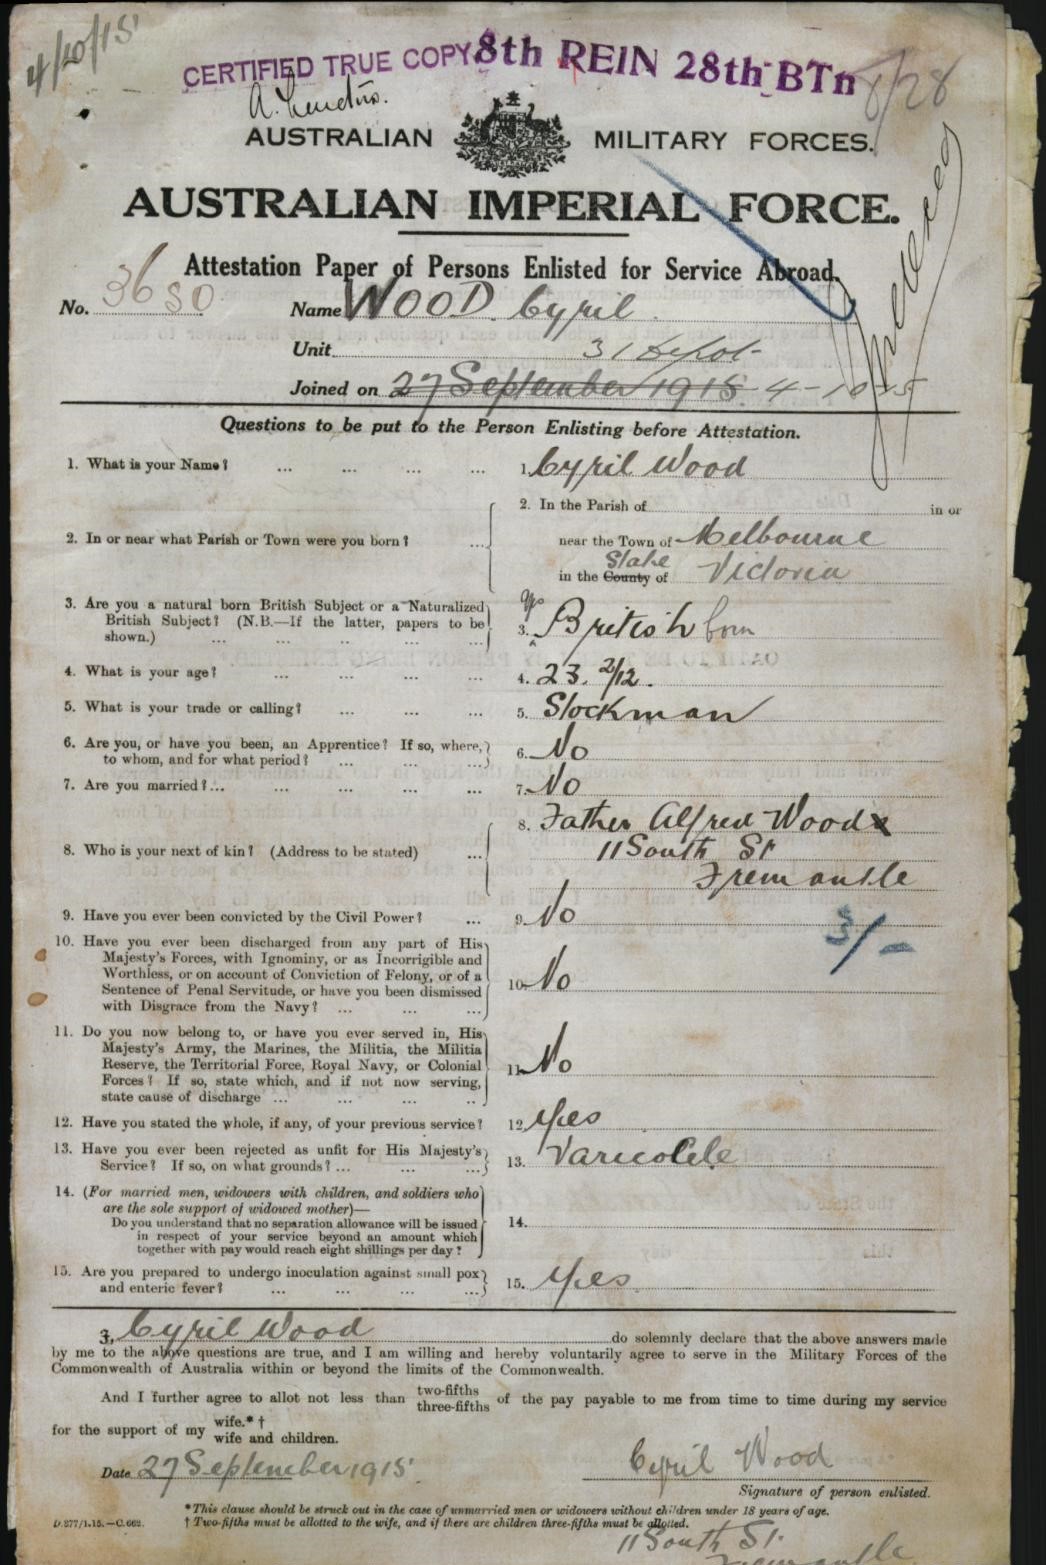 4/10/15
CERTIFIED TRUE COPY 8th REIN 28th BTn
8/28
AUSTRALIAN MILITARY FORCES.
AUSTRALIAN IMPERIAL FORCE.
Attestation Paper of Persons Enlisted for Service Abroad.
No. 3680 Name WOOD Cyril
Unit 31 Depot
Joined on 27 September 1915 4-10-15
Questions to be put to the Person Enlisting before Attestation.
1. What is your Name? ... ... ... ... 1. Cyril Wood
2. In the Parish of in or
2. In or near what Parish or Town were you born? ... near the Town of Melbourne
State
in the County of Victoria
3. Are you a natural born British Subject or a Naturalized Yes
British Subject? (N.B.—If the latter, papers to be 3. British born
shown.) ... ... .. ... ...
4. What is your age? ... ... ... ... 4. 23. 2/12.
5. What is your trade or calling? ... ... ... 5. Stockman
6. Are you, or have you been, an Apprentice? If so, where, 6. No
to whom, and for what period? ... ... ...
7. Are you married?... ... ... ... ... 7. No
8. Father Alfred Wood
8. Who is your next of kin? (Address to be stated) ... 11 South St
Fremantle
9. Have you ever been convicted by the Civil Power? ... 9. No
3/-
10. Have you ever been discharged from any part of His
Majesty's Forces, with Ignominy, or as Incorrigible and
Worthless, or on account of Conviction of Felony, or of a 10. No
Sentence of Penal Servitude, or have you been dismissed
with Disgrace from the Navy? ... ... ...
11. Do you now belong to, or have you ever served in, His
Majesty's Army, the Marines, the Militia, the Militia
Reserve, the Territorial Force, Royal Navy, or Colonial 11. No
Forces? If so, state which, and if not now serving,
state cause of discharge ... ... ... ..
12. Have you stated the whole, if any, of your previous service? 12. Yes
13. Have you ever been rejected as unfit for His Majesty's 13. Varicocele
Service? If so, on what grounds? ... ... ...
14. (For married men, widowers with children, and soldiers who
are the sole support of widowed mother)—
Do you understand that no separation allowance will be issued 14.
in respect of your service beyond an amount which
together with pay would reach eight shillings per day?
15. Are you prepared to undergo inoculation against small pox 15. Yes
and enteric fever? ... ... ...
I, Cyril Wood do solemnly declare that the above answers made
by me to the above questions are true, and I am willing and hereby voluntarily agree to serve in the Military Forces of the
Commonwealth of Australia within or beyond the limits of the Commonwealth.
And I further agree to allot not less than two-fifths three-fifths of the pay payable to me from time to time during my service
for the support of my wife.* † wife and children.
Date 27 September 1915 Cyril Wood
Signature of person enlisted.
* This clause should be struck out in the case of unmarried men or widowers without children under 18 years of age.
D.277/1.15.—C.662. † Two-fifths must be allotted to the wife, and if there are children three-fifths must be allotted.
11 South St.
Fremantle